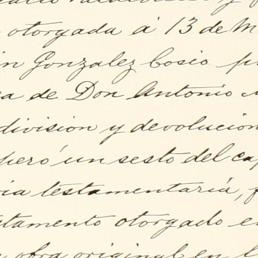 otorgada á 13 de M
in Gonzalez Cosio p
a de Don Antonio
division y devolucion
peró un sesto del ca
ia testamentaria, f
tamento otorgado e
obra original en l